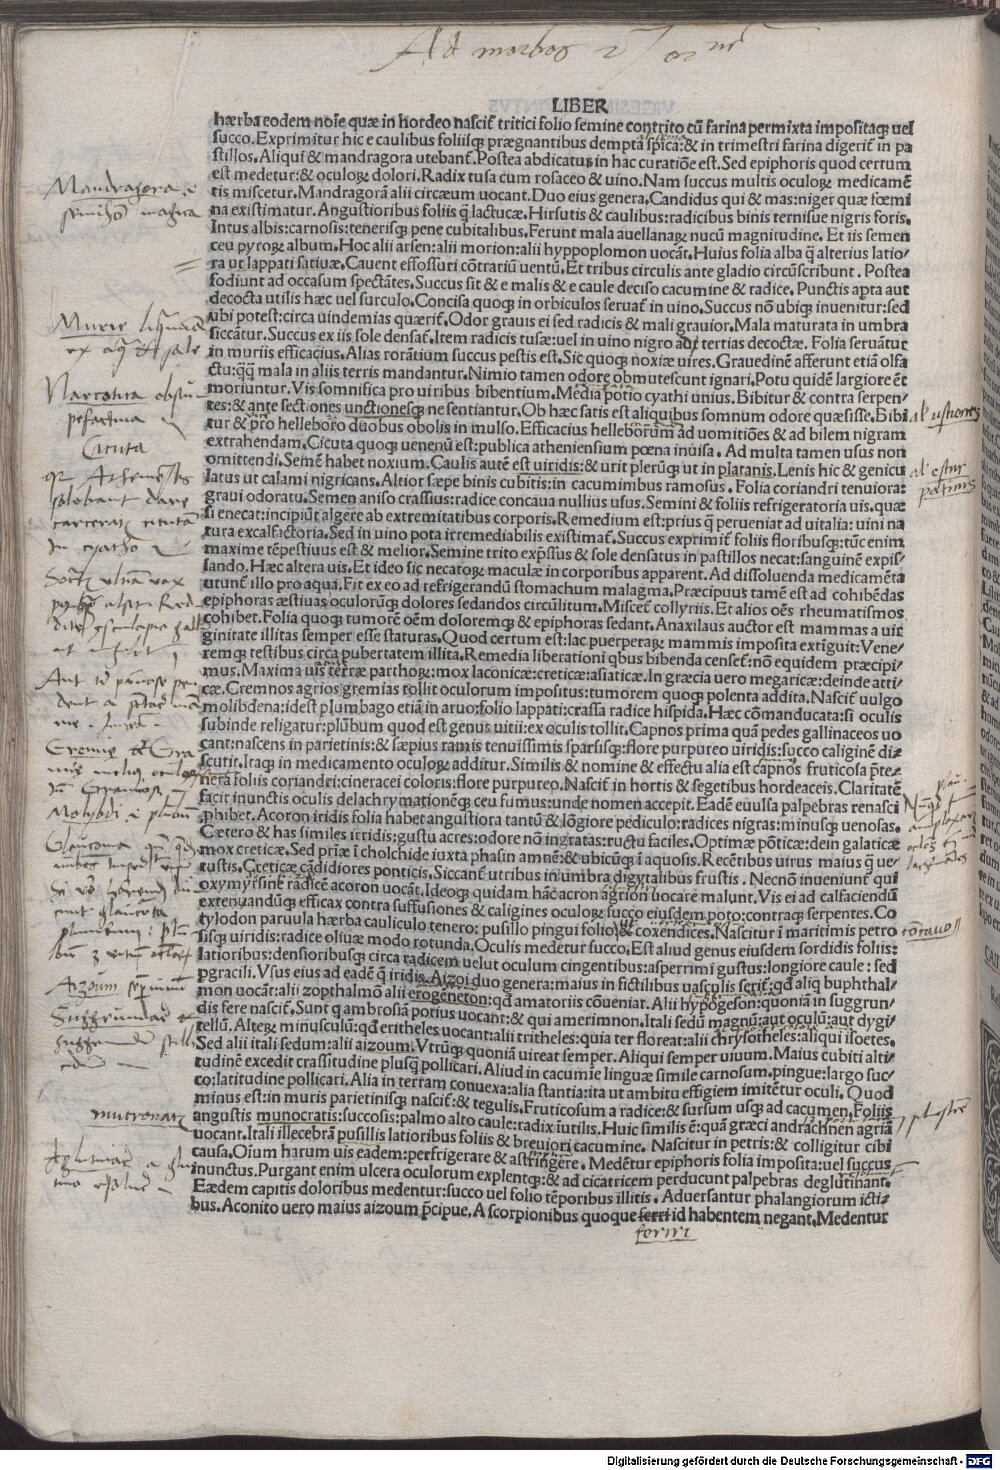 Ad morbos
LIBER
hærba eodem noīe quæ in hordeo nascit̄ tritici folio semine contrito cū farina permixta impositaꝗ uel
succo.Exprimitur hic e caulibus foliisꝗ prægnantibus dempta spica:& in trimestri farina digerit̄ in pa
stillos.Aliqui & mandragora utebant̄.Postea abdicatus in hac curatiōe est.Sed epiphoris quod certum
est medetur:& oculoꝝ dolori.Radix tusa cum rosaceo & uino.Nam succus multis oculoꝝ medicamē
tis miscetur.Mandragorā alii circæum uocant.Duo eius genera,Candidus qui & mas:niger quæ fœmi
na existimatur.Angustioribus foliis q̄ lactucæ.Hirsutis & caulibus:radicibus binis ternisue nigris foris.
Intus albis:carnosis:tenerisꝗ pene cubitalibus.Ferunt mala auellanaꝝ nucū magnitudine.Et iis semen
ceu pyroꝝ album.Hoc alii arsen:alii morion:alii hyppoplomon uocāt.Huius folia alba q̄ alterius latio/
ra ut lappati satiuæ.Cauent effossuri cōtrariū uentū.Et tribus circulis ante gladio circūscribunt.Postea
fodiunt ad occasum spectātes.Succus fit & e malis & e caule deciso cacumine & radice.Punctis apta aut
decocta utilis hæc uel surculo.Concisa quoꝗ in orbiculos seruat̄ in uino.Succus nō ubiꝗ inuenitur:sed
ubi potest:circa uindemias quærit̄.Odor grauis ei sed radicis & mali grauior.Mala maturata in umbra
siccātur.Succus ex iis sole densat̄.Item radicis tusæ:uel in uino nigro ad tertias decoctæ.Folia seruātur
in muriis efficacius.Alias rorātium succus pestis est.Sic quoꝗ noxiæ uires.Grauedinē afferunt etiā olfa
ctu:q̄q̄ mala in aliis terris mandantur.Nimio tamen odore obmutescunt ignari.Potu quidē largiore ēt
moriuntur.Vis somnifica pro uiribus bibentium.Media potio cyathi unius.Bibitur & contra serpen/
tes:& ante sectiones unctionesꝗ ne sentiantur.Ob hæc satis est aliquibus somnum odore quæsisse.Bibi
tur & pro helleboro duobus obolis in mulso.Efficacius helleborum ad uomitiōes & ad bilem nigram
extrahendam.Cicuta quoꝗ uenenū est:publica atheniensium pœna inuisa.Ad multa tamen usus non
omittendi.Semē habet noxium.Caulis autē est uiridis:& urit plerūꝗ ut in platanis.Lenis hic & genicu
latus ut calami nigricans.Altior sæpe binis cubitis:in cacumimbus ramosus.Folia coriandri tenuiora:
graui odoratu.Semen aniso crassius:radice concaua nullius usus.Semini & foliis refrigeratoria uis.quæ
si enecat:incipiūt algere ab extremitatibus corporis.Remedium est:prius q̄ perueniat ad uitalia:uini na
tura excalfactoria.Sed in uino pota irremediabilis existimat̄.Succus exprimit̄ foliis floribusꝗ:tūc enim
maxime tēpestiuus est & melior.Semine trito exp̄ssus & sole densatus in pastillos necat:sanguinē expis/
sando.Hæc altera uis.Et ideo sic necatoꝝ maculæ in corporibus apparent.Ad dissoluenda medicamēta
utunt̄ illo pro aqua.Fit ex eo ad refrigerandū stomachum malagma.Præcipuus tamē est ad cohibēdas
epiphoras æstiuas oculorūꝗ dolores sedandos circūlitum.Miscet̄ collyriis.Et alios oēs rheumatismos
cohibet.Folia quoꝗ tumorē oēm doloremꝗ & epiphoras sedant.Anaxilaus auctor est mammas a uir
ginitate illitas semper esse staturas.Quod certum est:lac puerperaꝝ mammis imposita extiguit:Vene/
remꝗ testibus circa pubertatem illita.Remedia liberationi qbus bibenda censet̄:nō equidem præcipi/
mus.Maxima uis terræ parthoꝝ:mox laconicæ:creticæ:asiaticæ.In græcia uero megaricæ:deinde atti/
cæ.Cremnos agrios gremias tollit oculorum impositus:tumorem quoꝗ polenta addita.Nascit̄ uulgo
molibdena:idest plumbago etiā in aruo:folio lappati:crassa radice hispida.Hæc cōmanducata:si oculis
subinde religatur:plūbum quod est genus uitii:ex oculis tollit.Capnos prima quā pedes gallinaceos uo
cant:nascens in parietinis:& sæpius ramis tenuissimis sparsisꝗ:flore purpureo uiridis:succo caliginē di/
scutit.Itaꝗ in medicamento oculoꝝ additur.Similis & nomine & effectu alia est capnos fruticosa p̄te/
nera foliis coriandri:cineracei coloris:flore purpureo.Nascit̄ in hortis & segetibus hordeaceis.Claritatē
facit inunctis oculis delachrymationēꝗ ceu fumus:unde nomen accepit.Eadē euulsa palpebras renasci
phibet.Acoron iridis folia habet angustiora tantū & lōgiore pediculo:radices nigras:minusꝗ uenosas.
Cætero & has similes irridis:gustu acres:odore nō ingratas:ructu faciles.Optimæ pōticæ:dein galaticæ
mox creticæ.Sed priæ i cholchide iuxta phasin amnē:& ubicūꝗ i aquosis.Recētibus uirus maius q̄ ue/
tustis.Creticæ cādidiores ponticis.Siccant̄ utribus in umbra digytalibus frustis.Necnō inueniunt̄ qui
oxymyrsinę radicē acoron uocāt.Ideoꝗ quidam hāc acron agrion uocare malunt.Vis ei ad calfaciendū
extenuandūꝗ efficax contra suffusiones & caligines oculoꝝ succo eiusdem poto:contraꝗ serpentes.Co
tylodon paruula hærba cauliculo tenero:pusillo pingui folio & coxendices.Nascitur i maritimis petro
sisꝗ uiridis:radice oliuæ modo rotunda.Oculis medetur succo.Est aliud genus eiusdem sordidis foliis:
latioribus:densioribusꝗ circa radicem uelut oculum cingentibus:asperrimi gustus:longiore caule:sed
pgracili.Vsus eius ad eadē q̄ iridis.Aizoi duo genera:maius in fictilibus uasculis serit̄:qd̄ aliq buphthal/
mon uocāt:alii zopthalmō alii erogēneton:qd̄ amatoriis cōueniat.Alii hypogeson:quoniā in suggrun/
dis fere nascit̄.Sunt q ambrosiā potius uocant:& qui amerimnon.Itali sedū magnū:aut oculū:aut dygi/
tellū.Alteꝝ minusculū:qd̄ eritheles uocant:alii tritheles:quia ter floreat:alii chrysotheles:aliqui isoetes.
Sed alii itali sedum:alii aizoum.Vtrūꝗ quoniā uireat semper.Aliqui semper uiuum.Maius cubiti alti/
tudinē excedit crassitudine plusq̄ pollicari.Aliud in cacumīe linguæ simile carnosum.pingue:largo suc/
co:latitudine pollicari.Alia in terram conuexa:alia stantia:ita ut ambitu effigiem imitētur oculi.Quod
minus est:in muris parietinisꝗ nascit̄:& tegulis.Fruticosum a radice:& sursum usꝗ ad cacumen.Foliis
angustis munocratis:succosis:palmo alto caule:radix iutilis.Huic similis ē:quā græci andrachnen agriā
uocant.Itali illecebrā pusillis latioribus foliis & breuiori cacumine.Nascitur in petris:& colligitur cibi
causa.Oium harum uis eadem:perfrigerare & astringere.Medētur epiphoris folia imposita:uel succus
inunctus.Purgant enim ulcera oculorum explentꝗ:& ad cicatricem perducunt palpebras deglutinant.
Eædem capitis doloribus medentur:succo uel folio tēporibus illitis.Aduersantur phalangiorum icti/
bus.Aconito uero maius aizoum p̄cipue.A scorpionibus quoque ferri id habentem negant.Medentur
feriri
Mandragora
Narcotica
Cicuta
Aizoum
Digitalisierung gefördert durch die Deutsche Forschungsgemeinschaft - DFG